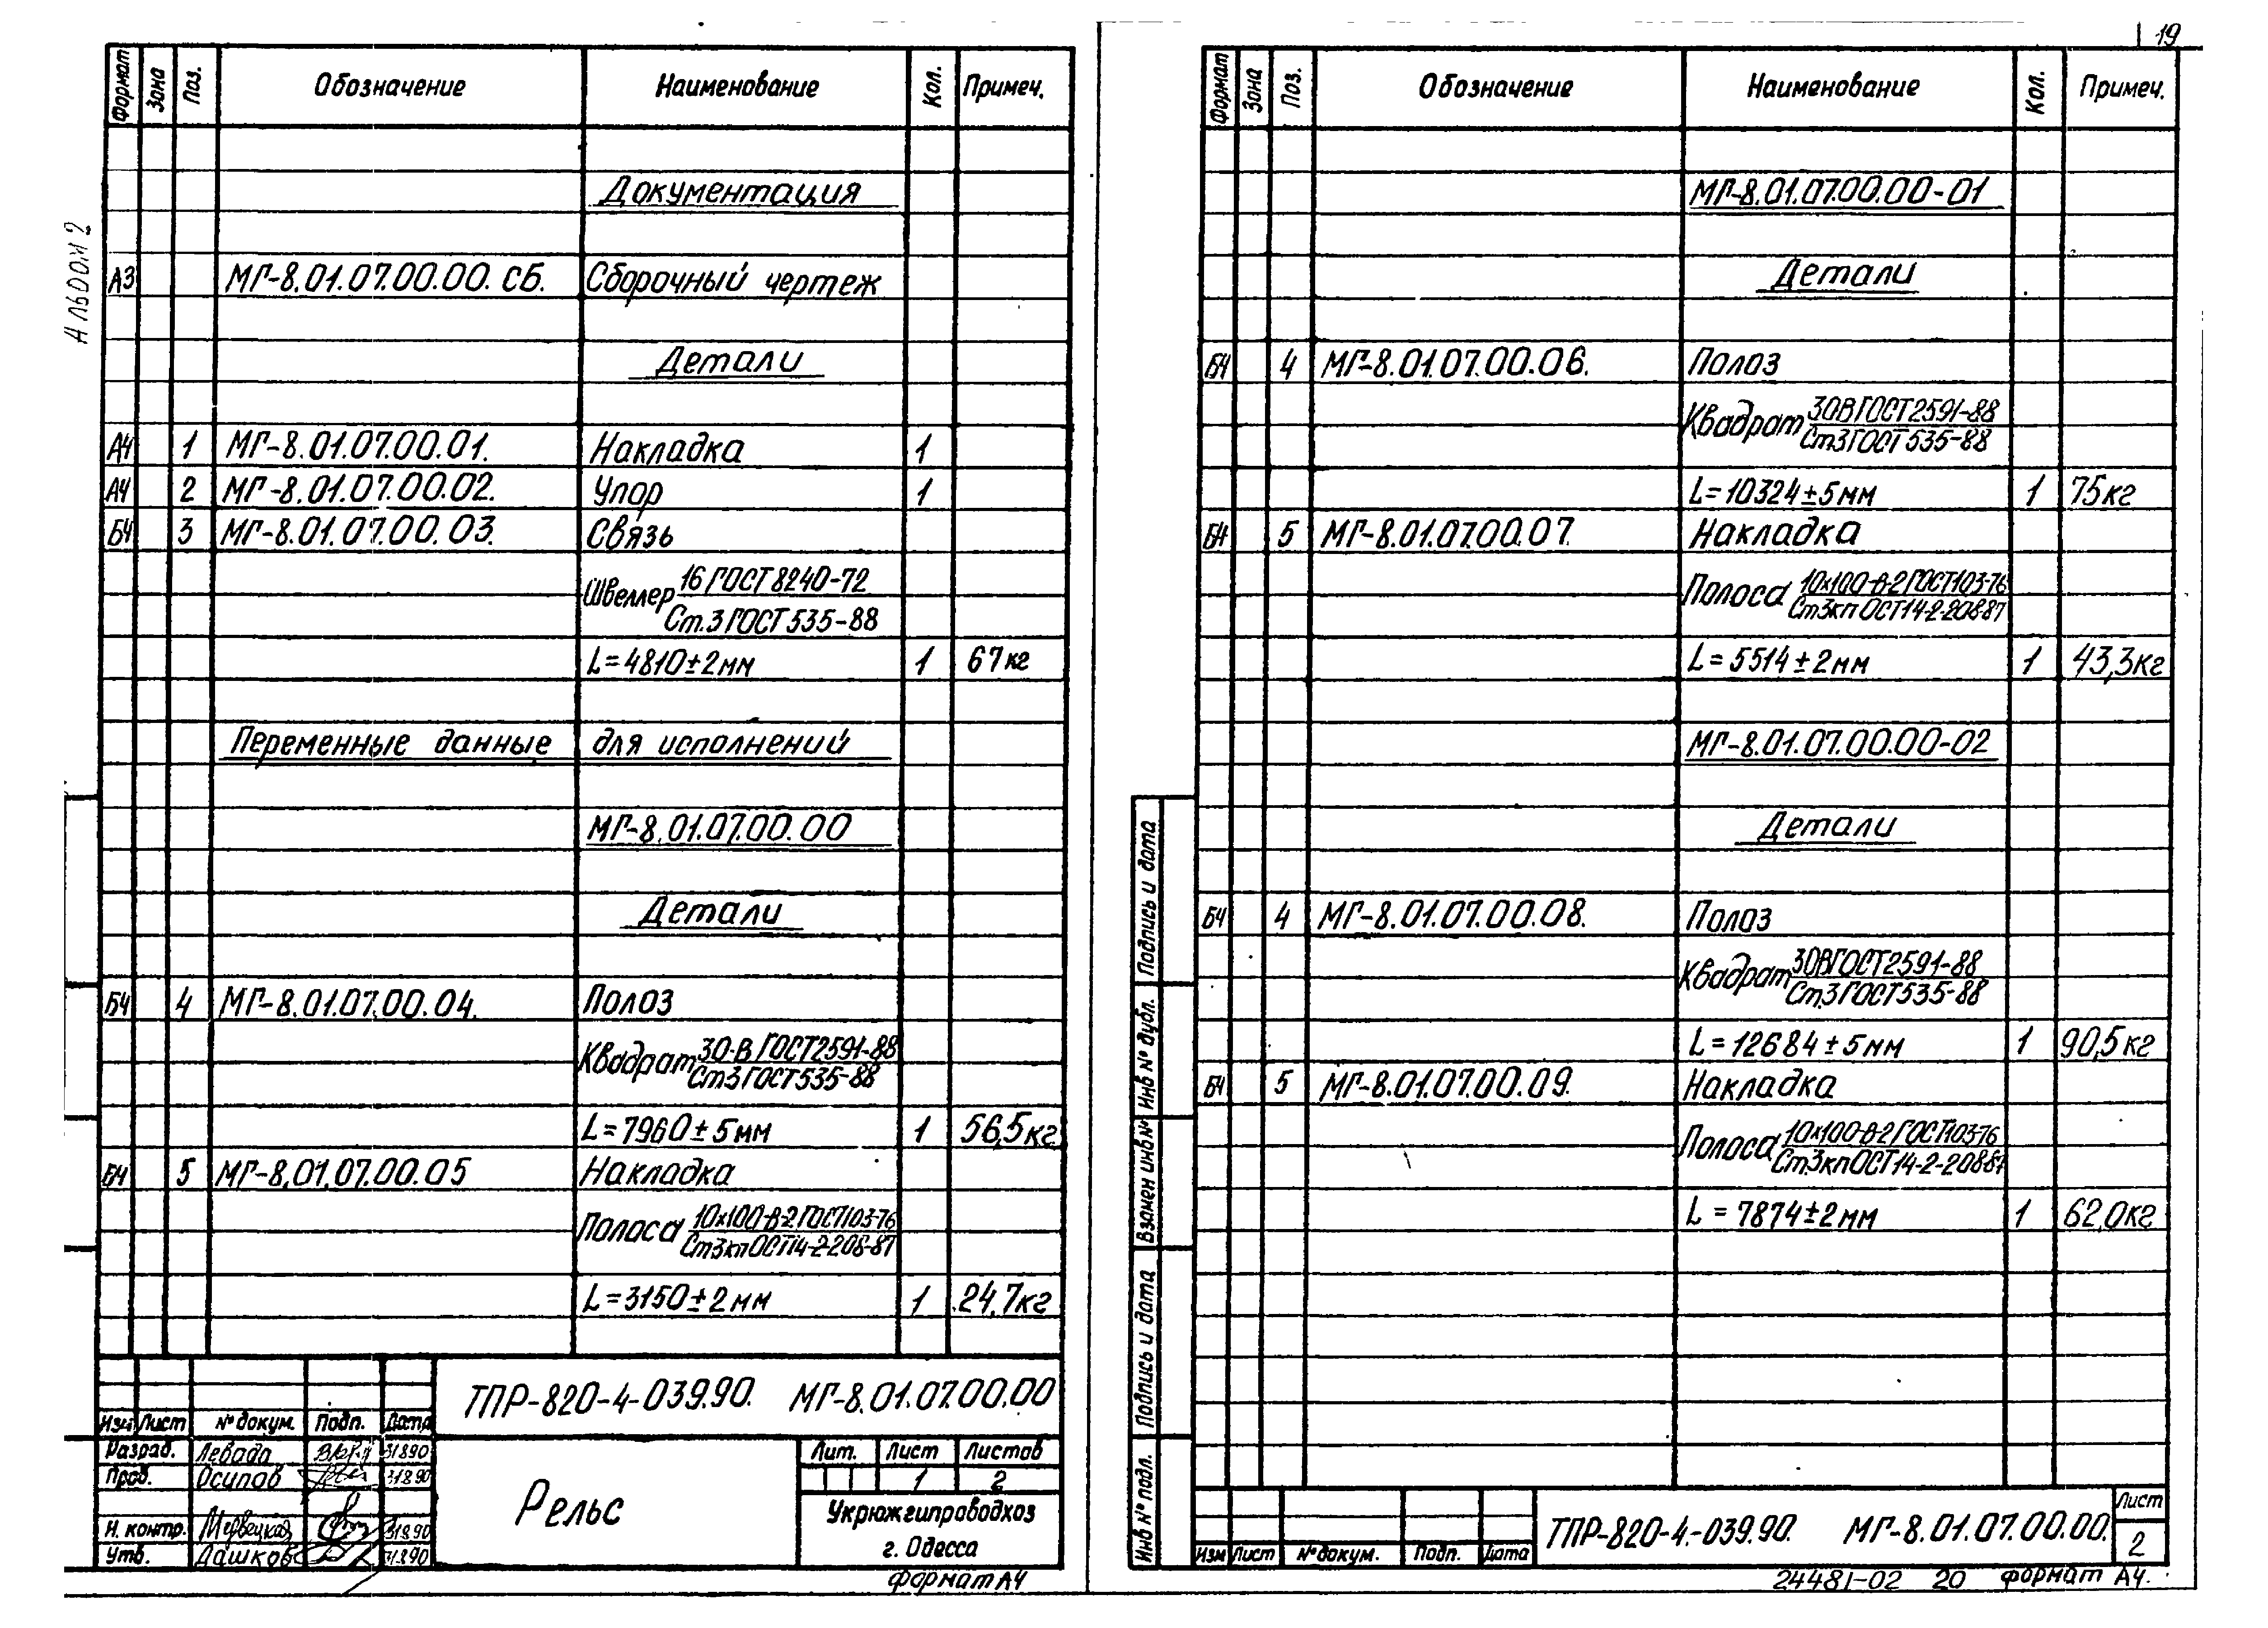 Альбом 2
Формат Зона Поз. Обозначение Наименование Кол. Примеч.
Документация
А3 МГ-8.01.07.00.00. СБ. Сборочный чертеж
Детали
А4 1 МГ-8.01.07.00.01. Накладка 1
А4 2 МГ-8.01.07.00.02. Упор 1
БЧ 3 МГ-8.01.07.00.03. Связь
Швеллер 16 ГОСТ 8240-72
Ст.3 ГОСТ 535-88
L=4810±2мм 1 67кг
Переменные данные для исполнений
МГ-8.01.07.00.00
Детали
БЧ 4 МГ-8.01.07.00.04. Полоз
Квадрат 30-В ГОСТ2591-88
Ст3 ГОСТ535-88
L=7960±5мм 1 56,5кг
БЧ 5 МГ-8.01.07.00.05 Накладка
Полоса 10х100-В-2 ГОСТ103-76
Ст3кп ОСТ14-2-208-87
L=3150±2мм 1 24,7кг
ТПР-820-4-039.90. МГ-8.01.07.00.00
Изм Лист № докум. Подп. Дата
Разраб. Левада 31890
Пров. Осипов 31890
Н. контр. 31890
Утв. Дашков 31890
Рельс
Лит. Лист Листов
1 2
Укрюжгипроводхоз
г. Одесса
Формат А4
19
Формат Зона Поз. Обозначение Наименование Кол. Примеч.
МГ-8.01.07.00.00-01
Детали
БЧ 4 МГ-8.01.07.00.06. Полоз
Квадрат 30В ГОСТ2591-88
Ст3 ГОСТ 535-88
L=10324±5мм 1 75кг
БЧ 5 МГ-8.01.07.00.07. Накладка
Полоса 10х100-В-2 ГОСТ103-76
Ст3кп ОСТ14-2-20887
L=5514±2мм 1 43,3кг
МГ-8.01.07.00.00-02
Детали
БЧ 4 МГ-8.01.07.00.08. Полоз
Квадрат 30В ГОСТ2591-88
Ст.3 ГОСТ535-88
L=12684±5мм 1 90,5кг
БЧ 5 МГ-8.01.07.00.09. Накладка
Полоса 10х100-В-2 ГОСТ103-76
Ст.3кп ОСТ14-2-20887
L=7874±2мм 1 62,0кг
Подпись и дата
Инв № дубл.
Взамен инв №
Подпись и дата
Инв № подл.
Изм Лист № докум. Подп. Дата
ТПР-820-4-039.90. МГ-8.01.07.00.00.
Лист
2
24481-02 20 Формат А4.